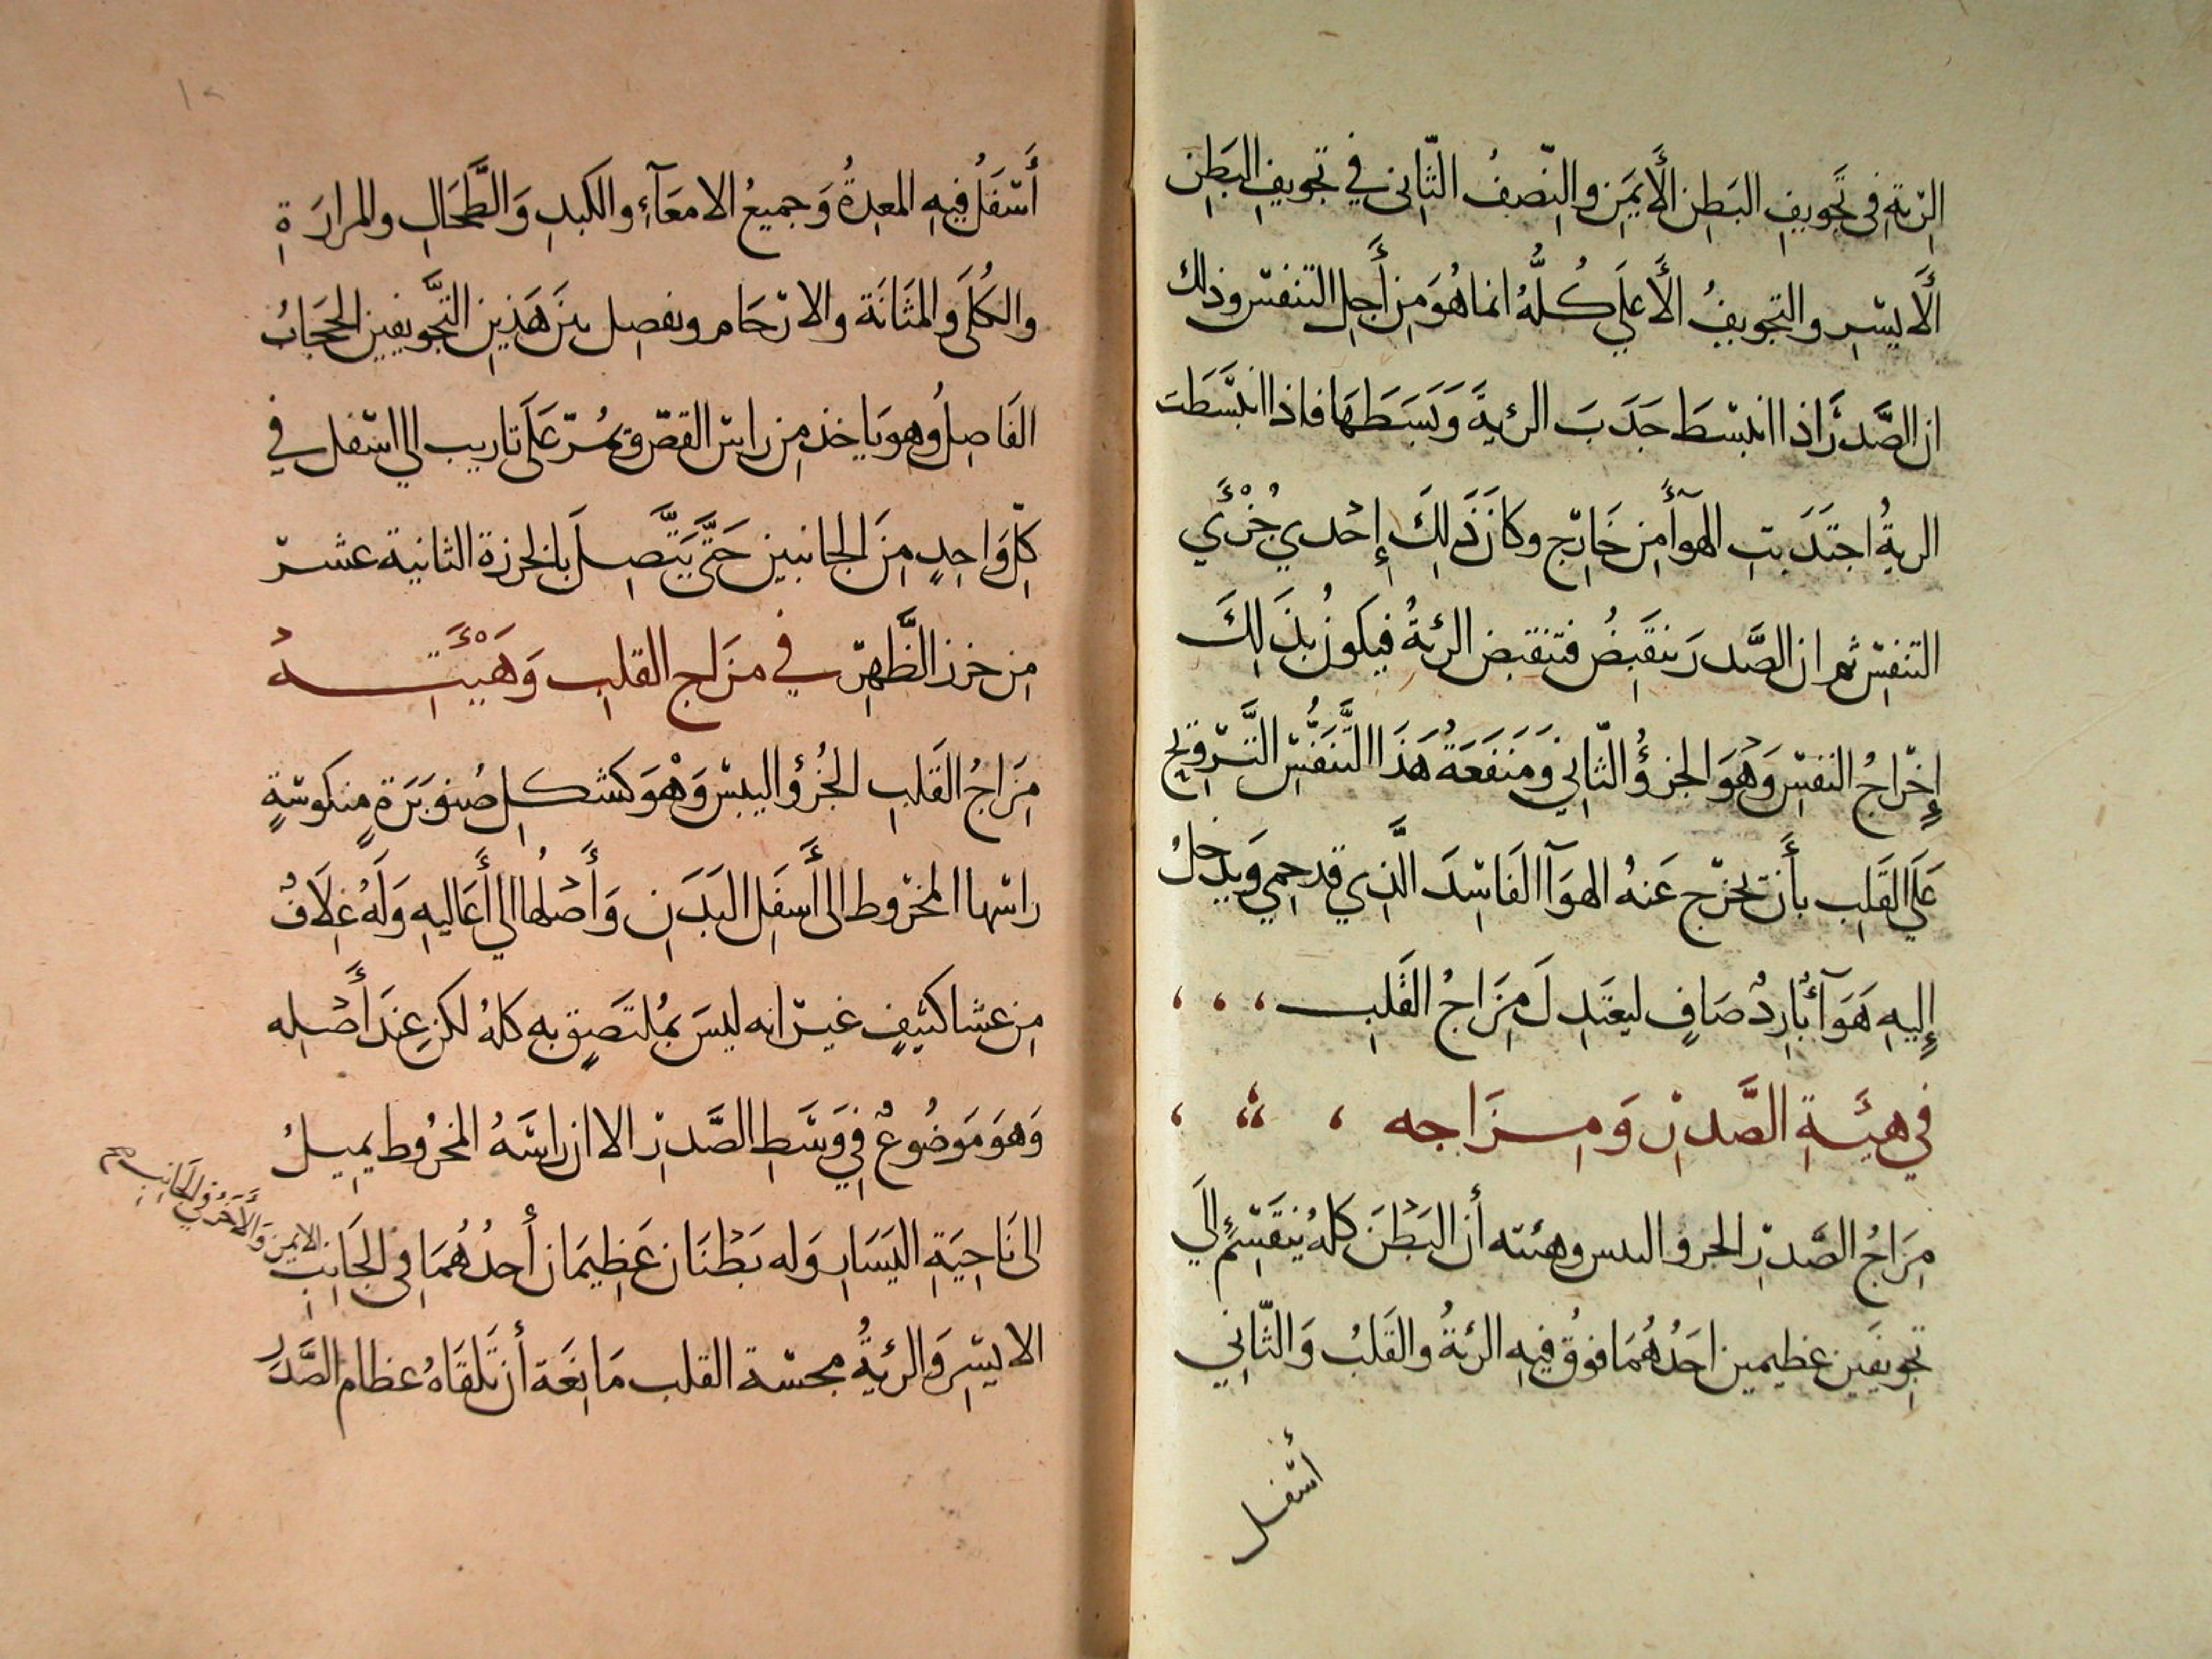 الرّيةِ فى تَجويفِ البَطنِ الأَيمَنِ والنّصفُ الثّانى في تجويفِ البَطنِ
الأَيسرِ والتجويفُ الأَعلَي كُلُّهُ انما هُوَ مِن أَجلِ التنفس وذلك
ان الصَّدرَ اذا انبسَطَ جَذَبَ الرئيةَ وَبَسَطَهَا فاذا انبَسَطَت
الريةُ اجتَذَبتِ الهوآءَ مِن خَارِج وكانَ ذَلِكَ إحْدي جُزْءَي
التنفسِ ثم ان الصَّدرَ يَنقَبِضُ فتنقبض الرئةُ فيكونُ بذَلِكَ
إخْراجُ النفسِ وَهْوَ الجزؤُ الثّانِي وَمَنفَعَةُ هَذَا التَّنَفُّسِ التَّروِيح
عَلَي القَلبِ بأَن تخرج عَنهُ الهوَآ الفَاسِدَ الَّذِي قد حمِي وَيدخلُ
إليهِ هَوَآءٌ بارِدٌ صَافٍ ليعتَدِلَ مِزَاجُ القَلبِ
في هيئَةِ الصَّدرِ وَمِزَاجه
مِزَاجُ الصَّدرِ الحر واليبس وهيئته أن البَطْنَ كلهُ يَنقَسِمُ إلَي
تجوِيفَينِ عظيمين احَدُهُمَا فوقُ فيهِ الرئةُ والقَلبُ وَالثّانِي
أسفل
١٢
أَسْفَلُ فيهِ المعِدةُ وَجميعُ الامعَآءِ والكبدِ وَالطَّحَالِ والمرارَةِ
والكُلَى وَالمَثَانَة والارْحَام ويفصِل بينَ هَذينِ التجَّويفينِ الحِجَابُ
الفَاصِلُ وهو يَاخذ مِن راس القصّ ويمُرّ عَلَى تاريب الي اسْفل في
كلّ وَاحِدٍ مِنَ الجانبين حَتَّى يَتَّصِلَ بالخرزة الثانية عشر
مِن خرز الظَّهرِ في مزَاج القلبِ وَهَيْئَتِهْ
مِزَاجُ القَلبِ الحُرؤ اليبسْ وَهْوَ كشكلِ صُنوبَرَةٍ منكوسَةٍ
راسْها المخْروط الى أَسفَلِ البَدَنِ وَأَصْلُها الي أَعَاليهِ وَلَهُ غِلَافٌ
مِن غشا كثيفٍ غيرَ انه ليسَ بمُلتَصِقٍ بهِ كلهُ لكن عِندَ أَصْلِه
وَهوَ مَوضُوعٌ فِي وَسَطِ الصَّدرِ الا ان راسَهُ المخرُوط يمِيلُ
الى نَاحِيَةِ اليَسَارِ وَله بَطْنَانِ عَظِيمَانِ أَحدُهُمَا فِي الجَانِبِ
الايمن وَالأَخَرُ في الجَانِبِ
الايسَرِ وَالرئيةُ مجسَة القلب مَانِعَة أن تَلقَاهُ عظام الصَّدَر